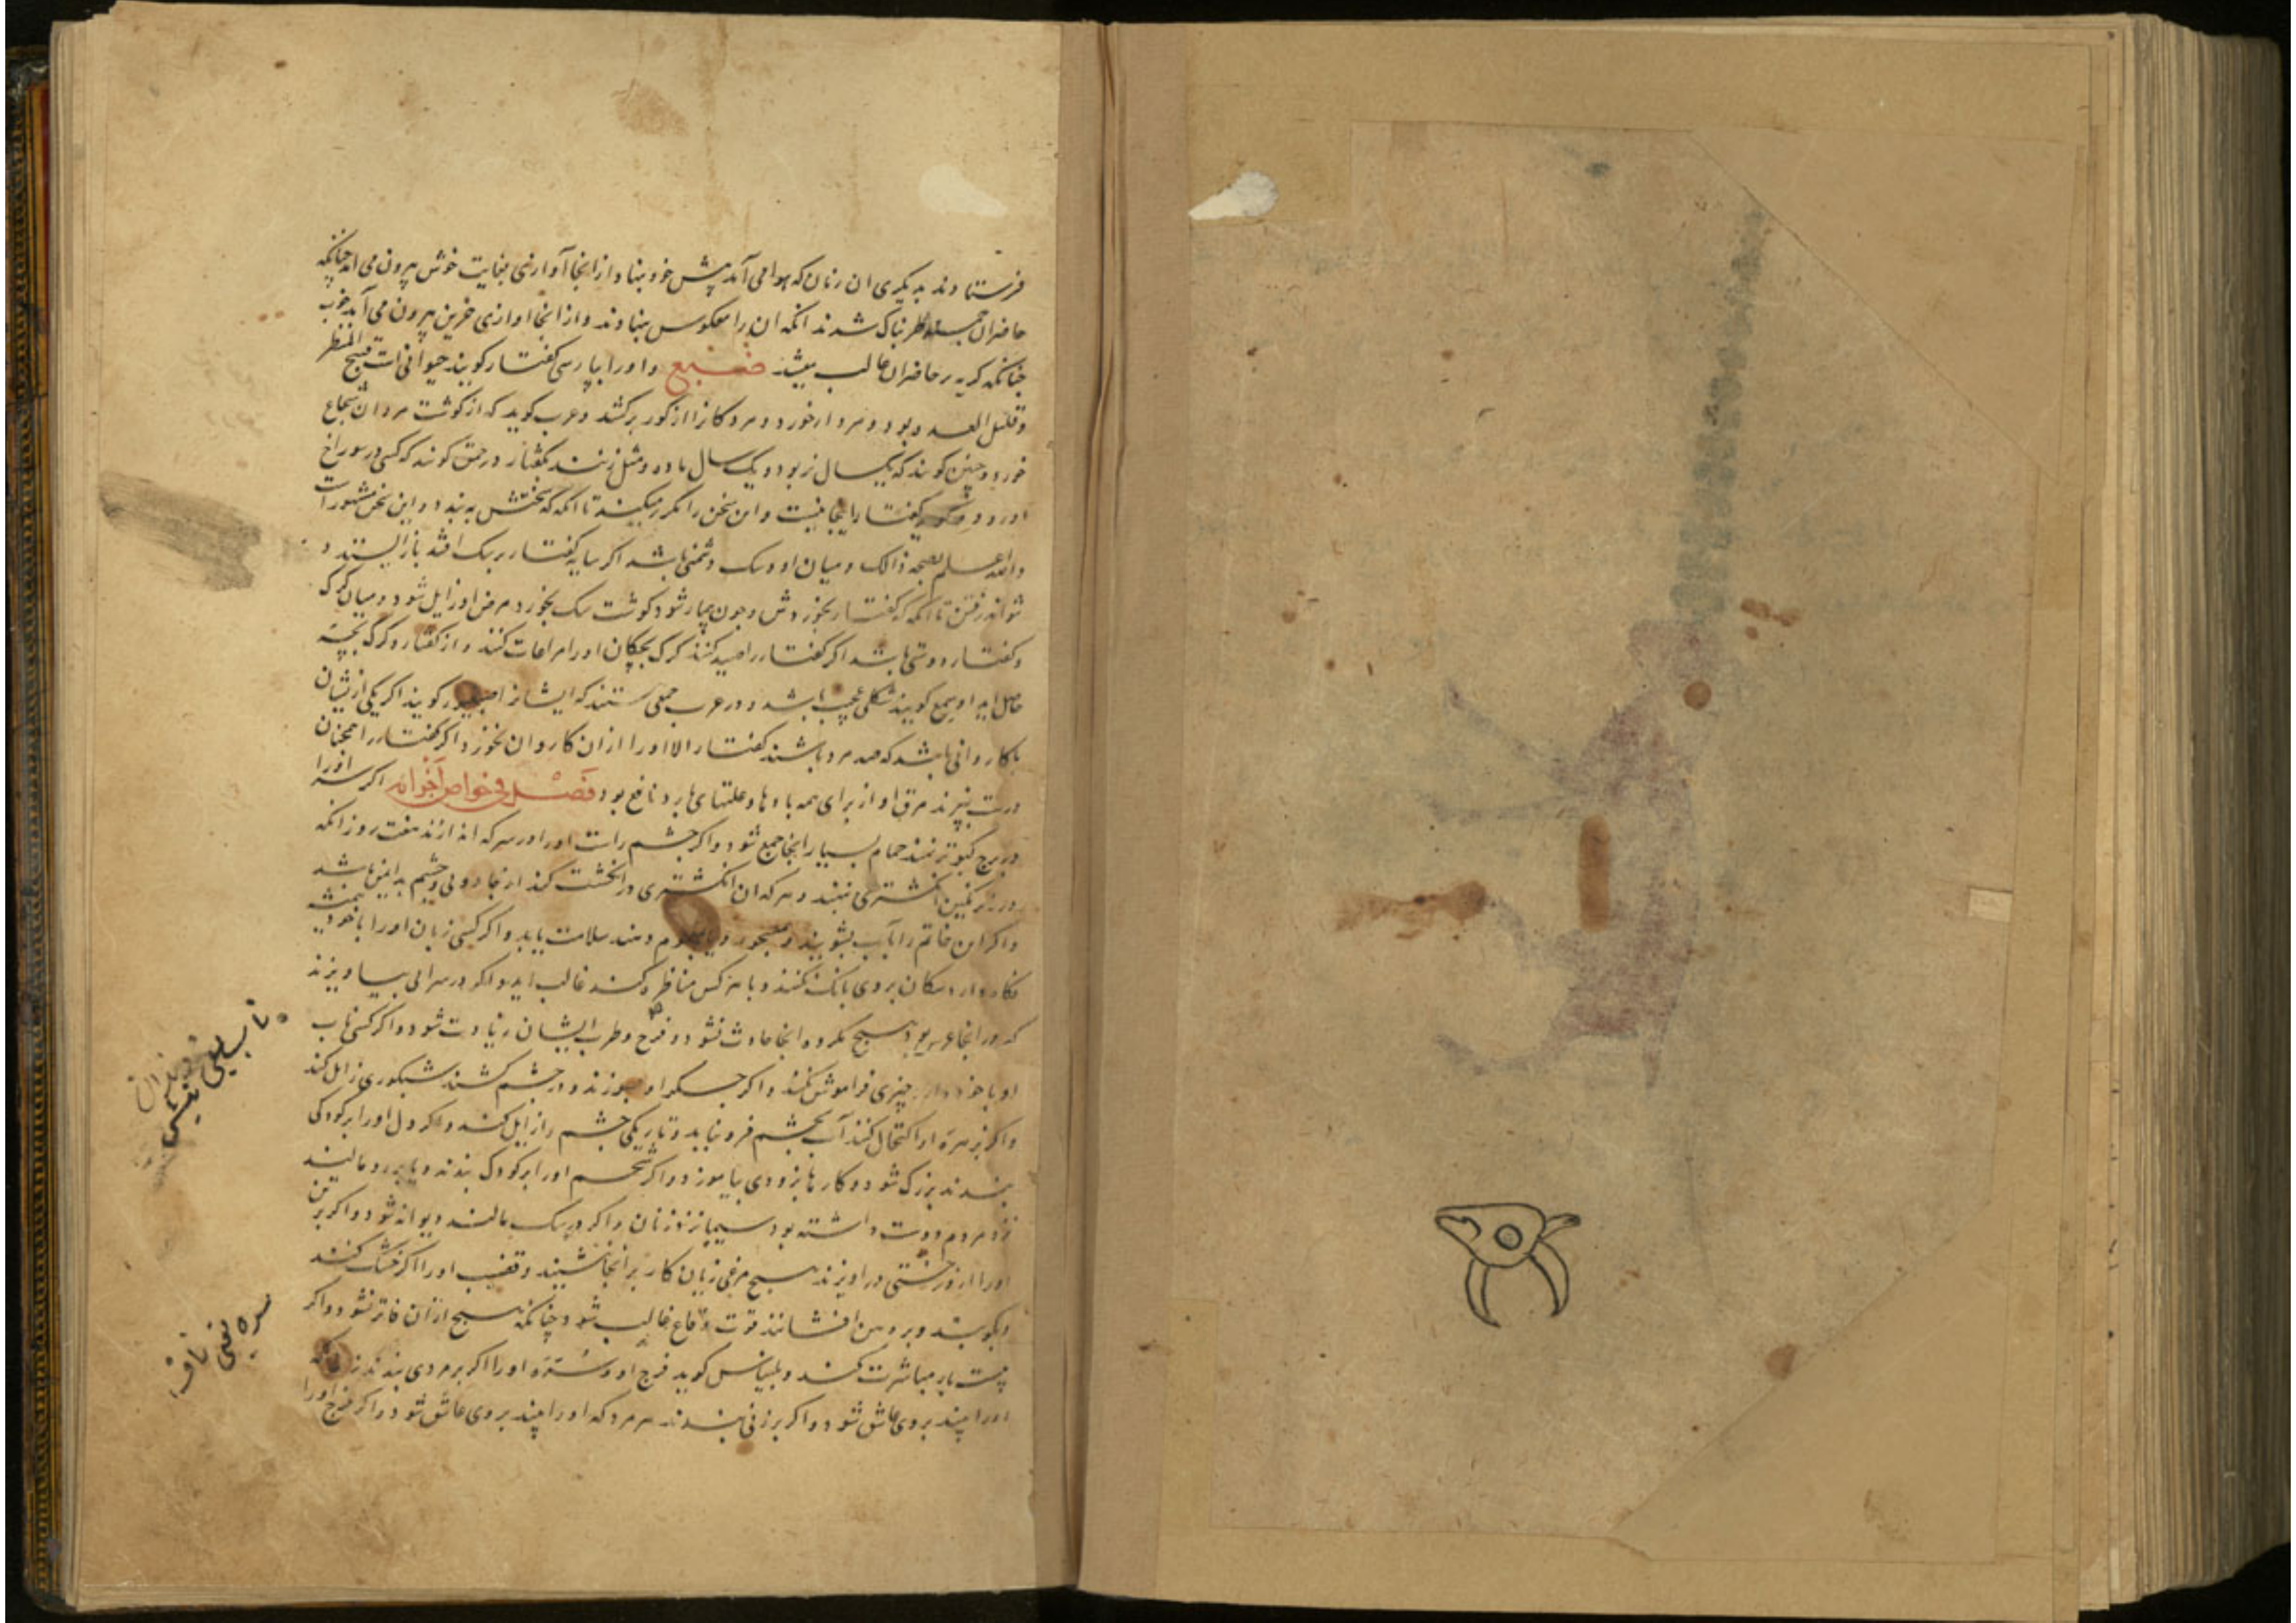 فرستادند بدیگری ان زمان که هوا می آمد پیش خود بنهاد از انجا آوازی بغایت خوش بیرون می امد چنانکه
حاضران طربناک شدند انکه ان را معکوس بنهادند و از انجا اوازی حزین بیرون می آمد خوب
چنانکه کریه بر حاضران غالب میشد ضبع و او را بپارسی کفتار کویند حیوانی است قبیح المنظر
و قلیل العدو بود و مردار خورد و مردکانرا از کور برکشد و عرب کوید که از کوشت مردان شجاع
خورد و چنین کویند که یکسال نر بود و یک سال ماده و مثل زنند بکفتار در حمق کویند که کسی در سوراخ
او رود و کوید کفتار اینجا نیست و این سخن را مکرر میکند تا انکه که سختش به بندد و این سخن مشهور است
والله اعلم بصحة ذالک و میان او و سک دشمنی باشد اکر سایه کفتار بر سک افتد باز ایستد و
نتواند رفتن تا انکه که کفتار بخوردش و چون بیمار شود کوشت سک بخورد مرض او زایل شود و میان کرک
و کفتار دوستی باشد اکر کفتار را صید کنند کرک بچکان او را مراعات کند و از کفتار و کرک بچه
حاصل اید او را سمع کویند شکلی عجیب باشد و در عرب جمعی هستند که ایشانرا کویند اکر یکی از ایشان
با کاروانی باشد که صد مرد باشند کفتار الا او را از ان کاروان نخورد و اکر کفتار را همچنان
درست بپزند مرق او از برای همه بادها و علتهای بارد نافع بود فصل فی خواص اجزائه اکر سر او را
در برج کبوتر نهند حمام بسیار انجا جمع شود و اکر چشم راست او را در سرکه اندازند هفت روز انکه
در زیر نکین انکشتری نهند و هر که ان انکشتری در انکشت کند از جادویی و چشم بد ایمن باشد
و اکر این خاتم را بآب بشویند و دهند سلامت یابد و اکر کسی زبان او را با خود
نکاه دارد سکان بر وی بانک نکنند و با هر کس مناظره کند غالب اید و اکر در سرای بیاویزند
که در انجا عروسی بود هیچ مکروه انجا حادث نشود و فرح و طرب ایشان زیادت شود و اکر کسی ناب
او با خود دارد چیزی فراموش نکند و اکر جکر او بسوزند و در چشم کشند شبکوری زایل کند
و اکر بزهره او اکتحال کنند آب بچشم فرو نیاید و تاریکی چشم را زایل کند و اکر دل او را بر کودکی
بندند بزرک شود و کارها بزودی بیاموزد و اکر شحم او را بر کودک بندند و یا بر رو مالند
نزد مردم دوست داشته بود سیما نزد زنان و اکر بر سک مالند دیوانه شود و اکر
او را از درختی دراویزند هیچ مرغی زیان کار بر انجا ننشیند و قضیب او را اکر خشک کنند
و بکوبند و بر دهن افشانند قوت وقاع غالب شود چنانکه هیچ از آن فاتر نشود و اکر
بیست بار مباشرت کند و بلیناس کوید فرج او و سره او را اکر بر مردی بندند زنانکه
او را بینند بر وی عاشق شود و اکر بر زنی بندند هر مرد که او را بیند بر وی عاشق شود و اکر فرج او را